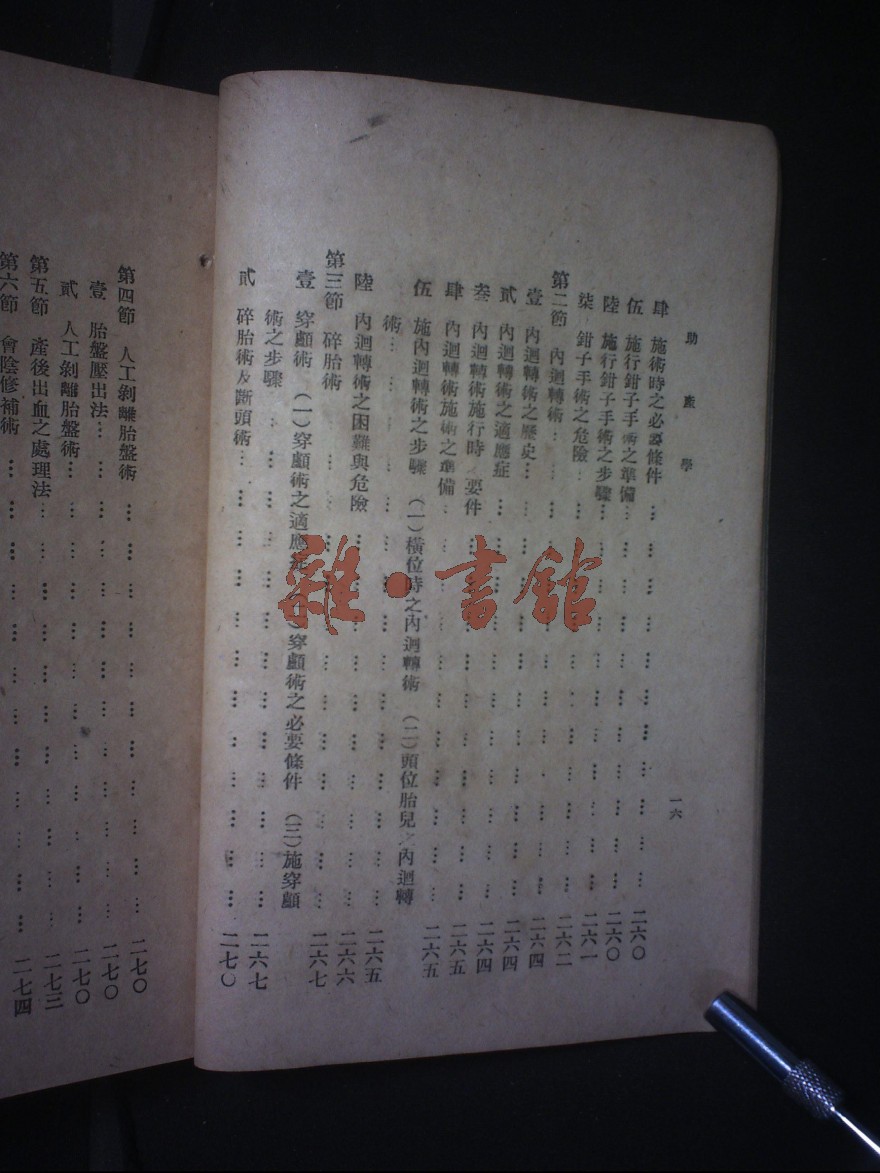 助產學
一六
肆 施術時之必要條件 … … … … … … … … … 二六〇
伍 施行鉗子手術之準備… … … … … … … … 二六〇
陸 施行鉗子手術之步驟… … … … … … … … 二六一
柒 鉗子手術之危險… … … … … … … … … 二六二
第二節 內迴轉術… … … … … … … … … … 二六四
壹 內迴轉術之歷史… … … … … … … … … 二六四
貳 內迴轉術之適應症… … … … … … … … 二六四
叁 內迴轉術施行時 要件 … … … … … … … 二六五
肆 內迴轉術施術之準備… … … … … … … … 二六五
伍 施內迴轉術之步驟 (一)橫位時之內迴轉術 (二)頭位胎兒之內迴轉
術… … … … … … … … … … … 二六五
陸 內迴轉術之困難與危險 … … … … … … … 二六六
第三節 碎胎術… … … … … … … … … … 二六七
壹 穿顱術 (一)穿顱術之適應症 (二)穿顱術之必要條件 (三)施穿顱
術之步驟 … … … … … … … … … … 二六七
貳 碎胎術及斷頭術… … … … … … … … … 二七〇
第四節 人工剝離胎盤術 … … … … … … … … 二七〇
壹 胎盤壓出法… … … … … … … … … … 二七〇
貳 人工剝離胎盤術… … … … … … … … … 二七〇
第五節 產後出血之處理法… … … … … … … … 二七三
第六節 會陰修補術 … … … … … … … … … 二七四
雜·書館